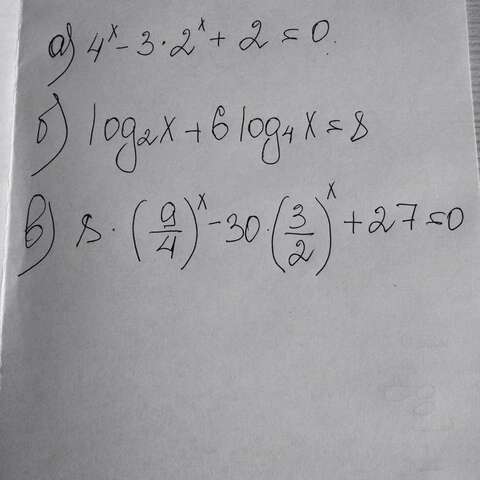 а) 4^x - 3 · 2^x + 2 = 0.
б) log₂x + 6 log₄x = 8
в) 8 · (9/4)^x - 30 · (3/2)^x + 27 = 0